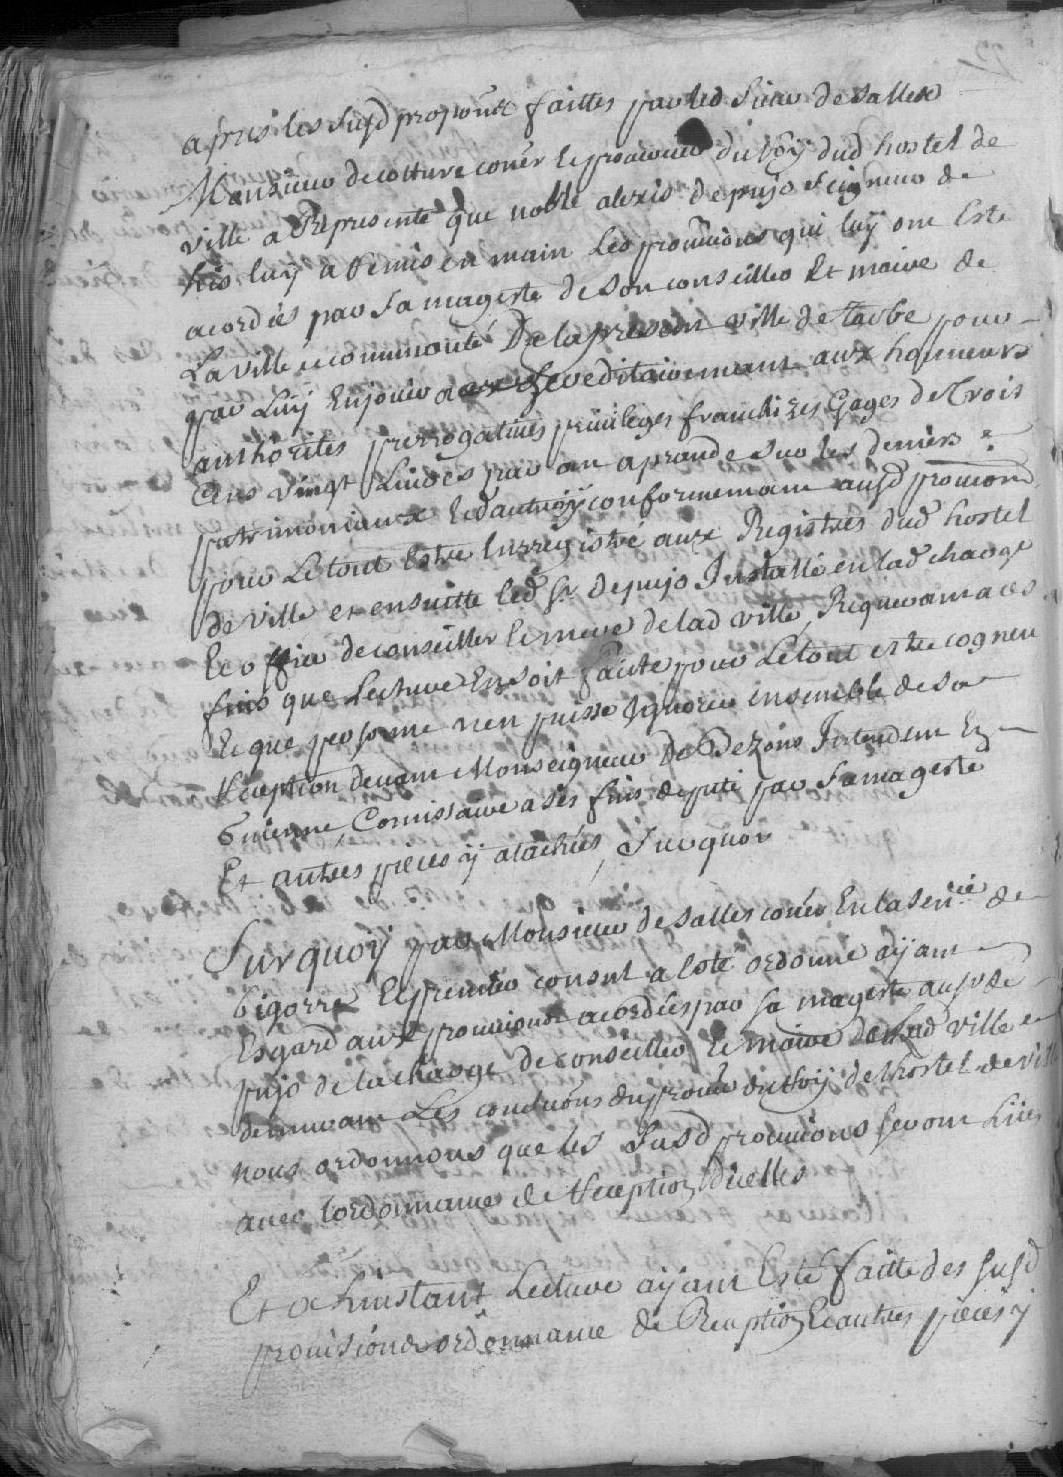 apres les susd propoons faittes par led sieur de salles
Monsieur de colture conér le procureur du Roy dud hostel de
ville a Represente que noble alexis de pujo seigneur de
luy a remis en main les prouisions qui luy ont este
acordées par sa mageste de son conseiller Et maire de
La ville et communauté De la presant ville de tarbe pour
par Luy En jouir hereditairement aux honneurs
authorites prerrogatiues priuileges franchizes Gages de Trois
Cens vingt Liures par an a prande sur les deniers
patrimoniaux Et dautroy conformemant ausd prouions
pour Le tout Estre Enregistré aux Registres dud hostel
de ville et ensuitte led sr depujo Installé en lad charge
Et office de conseiller Et maire de lad ville, Requerant a ces
fins que Lecture En soit faite pour Le tout estre cogneu
Et que personne nen puisse Ignorer ensemble de sa
Reception deuant Monseigneur De Bezons Intendent En
Guienne Comissaire a ses fins deputé par sa mageste
Et autres pieces ÿ atachées, Sur quoy
Surquoÿ par Monsieur de salles conér En la sen.cée de
bigorre Et premier consul a esté ordonné aÿant
Esgard aux prouisions acordées par sa mageste au sr de
pujo de la charge de conseiller Et maire de Lad ville et
demeurant Les conclusions du procur du Roÿ de lhostel de vill
nous ordonnons que les Susd prouisions seront Lües
auec lordonnance de Reception dicelles
Et a Linstant Lecture aÿant Esté faitte des susd
prouisions ordonnance de Reception Et autres pieces ÿ